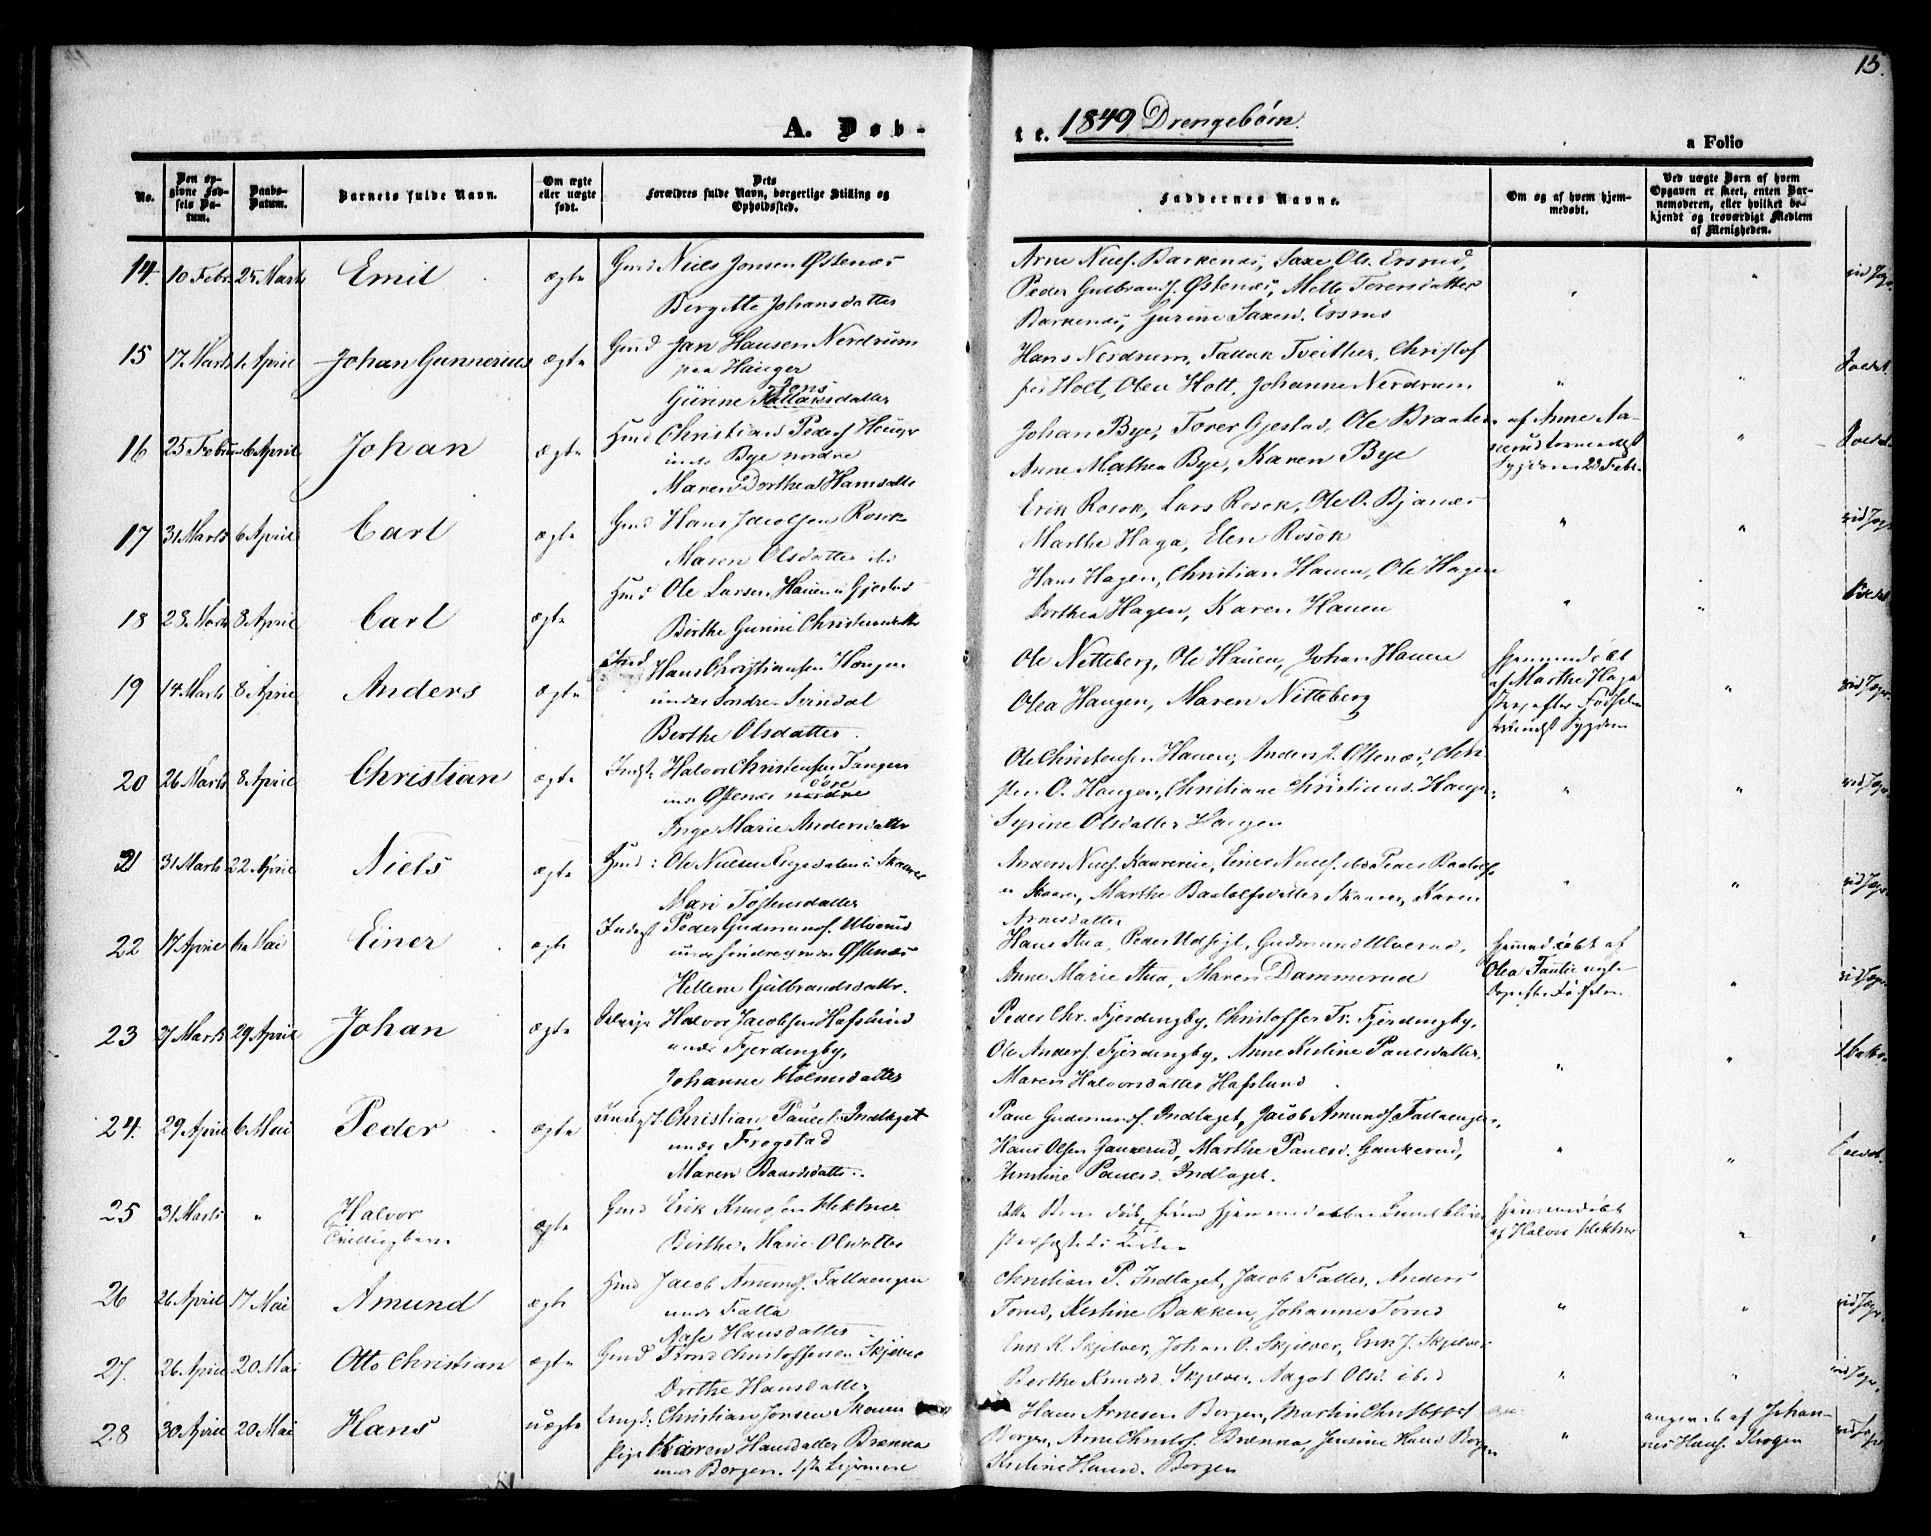 15.
A. Døb-
te. 1849 Drengebörn.
a Folio
No.
Den op-
givne Fød-
sels Da-
tum.
Daabs-
Datum.
Barnets fulde Navn.
Om ægte
eller uægte
født.
Dets
Forældres fulde Navn, borgerlige Stilling og
Opholdssted.
Faddernes Navne.
Om og af hvem hjem-
medøbt.
Ved uægte Børn af hvem
Opgaven er skeet, enten Bar-
nemoderen, eller hvilket be-
kjendt og troværdigt Medlem
af Menigheden.
14. 10 Febr. 25 Marts Emil ægte Gmd Niels Jonsen Østenæs
Bergitte Johansdatter
Arne Niels. Barkenæs, Saxe Ols. Ersrud,
Peder Gulbrands. Østenæs, Mette Torersdatter
Barkenæs, Gurine Saxesd. Ersrud
15 17 Marts 1 April Johan Gunnerius ægte Gmd Jan Hansen Nordrum
paa Hauger
Gurine Jonsdatter
Hans Nordrum, Fallak Tveither, Christof
fer Holt, Olea Holt, Johanne Nordrum
16 25 Februar 6 April Johan ægte Hmd Christian Peders. Hauger
under Bye nordre
Maren Dorthea Hansdatter
Johan Bye, Torer Gjestad, Ole Braaten
Anne Mathea Bye, Karen Bye
af Anne Aa-
nerud formedelst
Sygdom 28 Febr.
17 31 Marts 6 April Carl ægte Gmd Hans Jacobsen Rosok
Maren Olsdatter ibd
Erik Rosok, Lars Rosok, Ole O. Bjanæs
Marthe Haga, Elen Rosok
18 28 Marts 8 April Carl ægte Hmd Ole Larsen Hauen u Gjestad
Birthe Gurine Christensdatter
Hans Hagen, Christian Hauen, Ole Hagen
Dorthea Hagen, Karen Hauen
19 14 Marts 8 April Anders ægte Hans Christiansen Haugen
under Søndre Svindal
Berthe Olsdatter.
Ole Nitteberg, Ole Hauen, Johan Hauen
Olea Haugen, Maren Nitteberg
Hjemmedøbt
af Marthe Haga
strax efter Fødselen
formedelst Sygdom
20 26 Marts 8 April Christian ægte Indst. Halvor Christensen Tangen
under Østenæs øvre
Inge Marie Andersdatter
Ole Christensen Hauen, Anders J. Østenæs, Chri-
sten O. Haugen, Christiane Christians. Haugen
Syrine Olsdatter Haugen
21 31 Marts 22 April Niels ægte Gmd: Ole Nielsen Engedalen i Skaarer
Mari Tostensdatter
Anders Niels. Kaurerud, Einer Niels. ibd Peder Baatolfs
en Skaarer, Marthe Baatolfsdatter Skaarer, Karen
Arnesdatter
22 17 April 6 Mai Einer ægte Indst Peder Gudmunds. Ulverud
under søndre Østenæs
Hellene Gulbrandsdatter.
Hans Stua, Peder Udsigt, Gudmund Ulverud,
Anne Marie Stua, Maren Dammerud
Hjemmedøbt af
Olea
strax efter Fødselen
23 7 Marts 29 April Johan ægte Halvor Jacobsen Hafslund
under Fjerdingby,
Johanne Holmsdatter
Peder Chr. Fjerdingby, Christoffer Fr. Fjerdingby,
Ole Anders. Fjerdingby, Anne Kirstine Paulsdatter,
Maren Halvorsdatter Hafslund
24. 29 April 6 Mai Peder ægte Indst. Christian Paulsen Indlaget
under Frogstad
Maren Baardsdatter
Paul Gudmunds. Indlaget, Jacob Amunds. Fallaengen,
Hans Olsen Gaukerud, Marthe Paulsd. Gaukerud,
Kirstine Paulsd. Indlaget.
25 31 Marts " Halvor
Tvillingbarn
ægte Gmd Erik Knudsen Hektner
Birthe Marie Olsdatter
Hjemmedøbt
af Halvor Hektner
26 26 April 17 Mai Amund ægte Hmd Jacob Amunds. Fallaengen
under Falla
Aase Hansdatter
Christian P. Indlaget, Jacob Faller, Anders
Tomd, Kirstine Bakken, Johanne Tomd
27. 26 April 20 Mai Otto Christian ægte Gmd Trond Christoffersen Skjelver
Dorthe Hansdatter
Erik K. Skjelver, Johan O. Skjelver, Erik J. Skjelver
Berthe Knudsd. Skjelver, Aagot Olsd. ibd
28 30 April 20 Mai Hans uægte Ungk. Christian Jonsen Skauen
Pige Karen Hansdatter Brænna
under Borgen. 1ste Leiermaal
Hans Arnesen Borgen, Martin Christoffers.
Borgen, Arne Christofs. Brænna, Jensine Hansd Borgen
Kirstine Hansd. Borgen
angivet af Johan-
nes Hans. Krogen